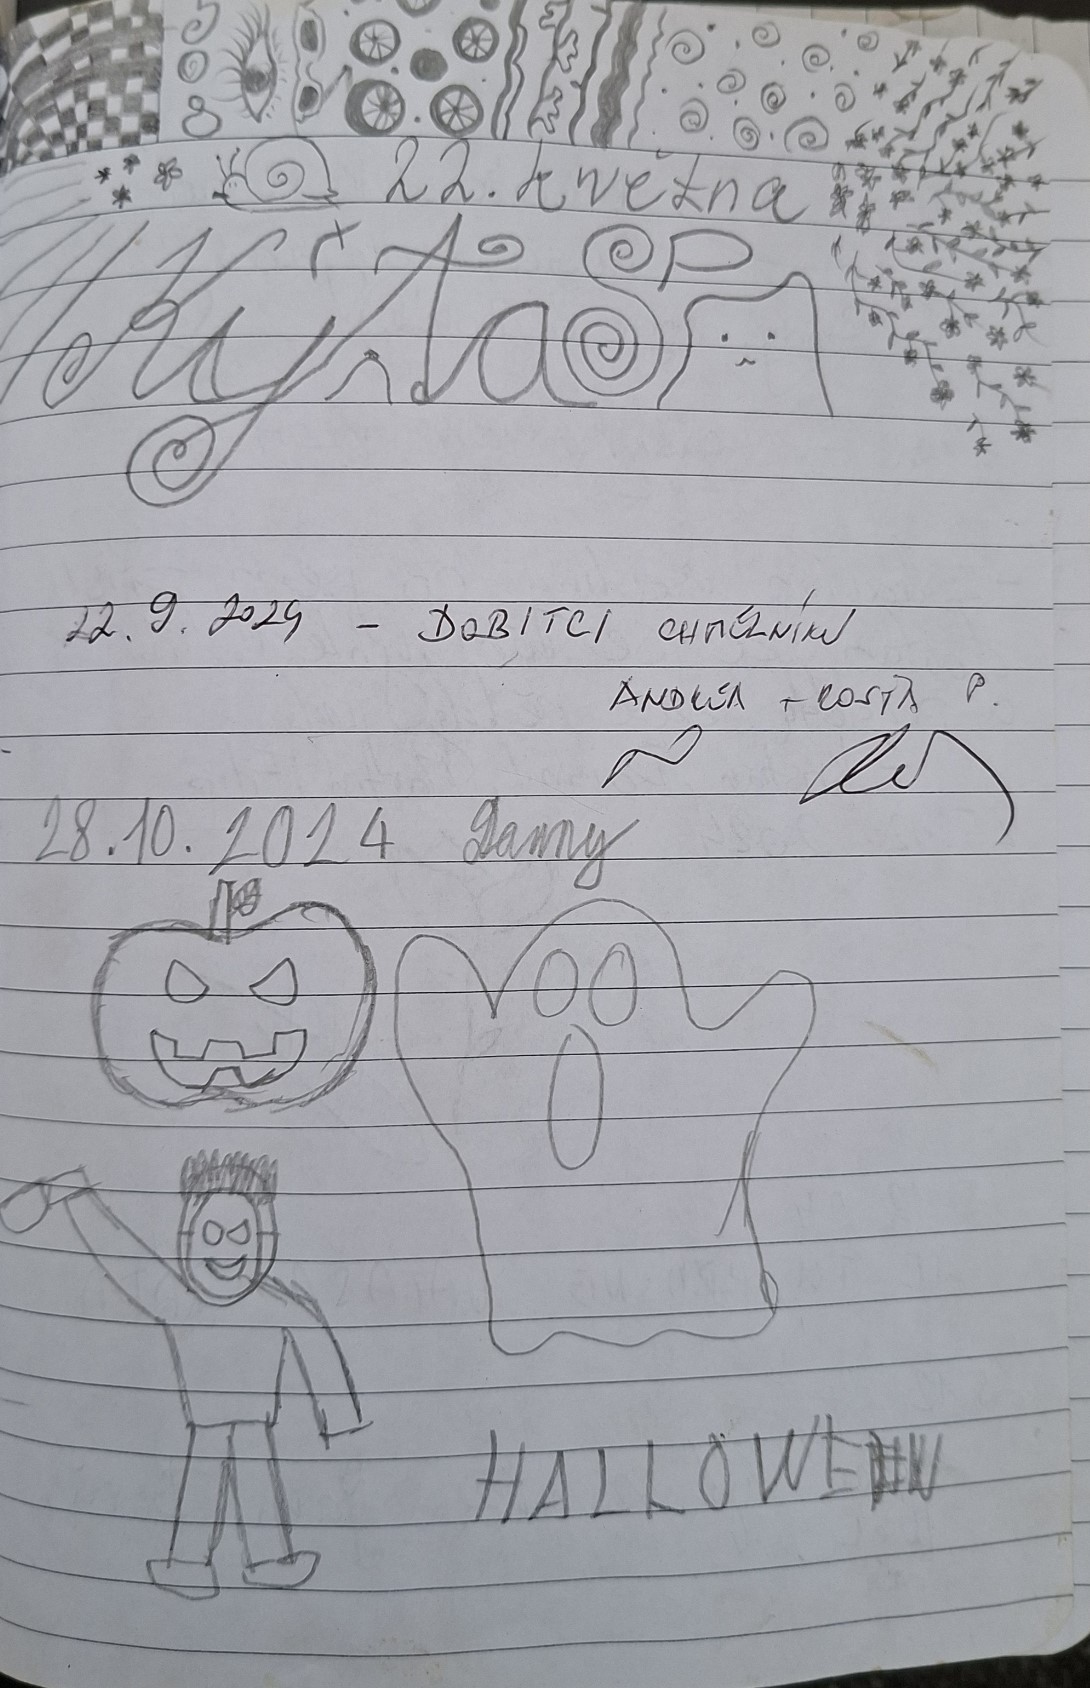 22. května
22. 9. 2024 – DOBITCI CHMELNÍKU
ANDREA + KOSŤA P.
28.10.2024 Danny
HALLOWEEN